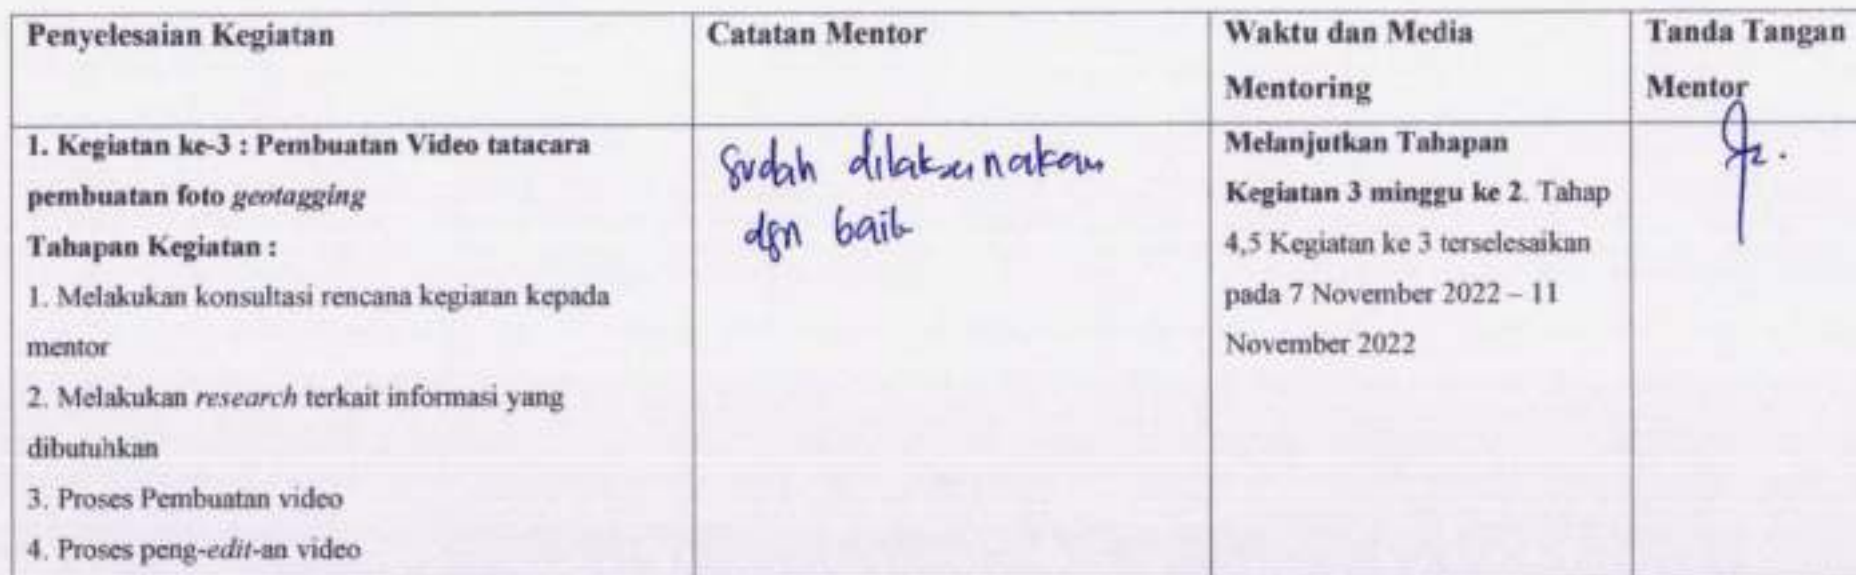 Penyelesaian Kegiatan
Catatan Mentor
Waktu dan Media
Mentoring
Tanda Tangan
Mentor
1. Kegiatan ke-3 : Pembuatan Video tatacara
pembuatan foto geotagging
Tahapan Kegiatan :
1. Melakukan konsultasi rencana kegiatan kepada
mentor
2. Melakukan research terkait informasi yang
dibutuhkan
3. Proses Pembuatan video
4. Proses peng-edit-an video
Sudah dilaksanakan
dgn baik
Melanjutkan Tahapan
Kegiatan 3 minggu ke 2. Tahap
4,5 Kegiatan ke 3 terselesaikan
pada 7 November 2022 – 11
November 2022